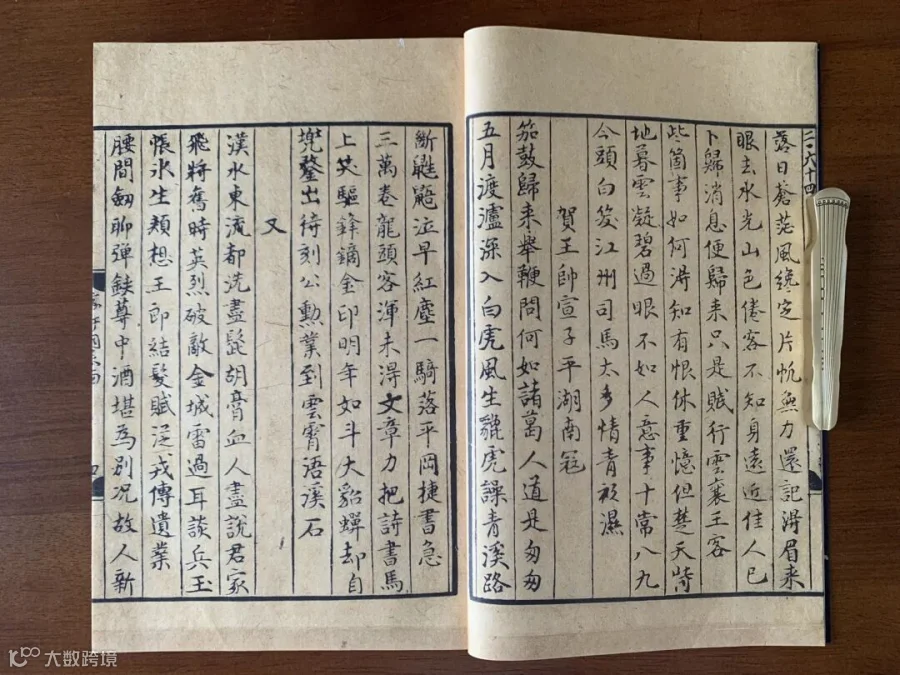 二·六十四
落日蒼茫風纔定片帆無力還記得眉來
眼去水光山色倦客不知身遠近佳人已
卜歸消息便歸來只是賦行雲襄王客
些箇事如何得知有恨休重憶但楚天特
地暮雲凝碧過眼不如人意事十常八九
今頭白笑江州司馬太多情青衫濕
賀王帥宣子平湖南寇
笳鼓歸來舉鞭問何如諸葛人道是匆匆
五月渡瀘深入白虎風生貔虎譟青溪路
斷鼪鼯泣早紅塵一騎落平岡捷書急
三萬卷龍頭客渾未得文章力把詩書馬
上笑驅鋒鏑金印明年如斗大貂蟬却自
兜鍪出待刻公勳業到雲霄語溪石
又
漢水東流都洗盡髭胡膏血人盡說君家
飛將舊時英烈破敵金城雷過耳談兵玉
帳冰生頰想王郎結髮賦從戎傳遺業
腰間劒聊彈鋏尊中酒堪為別況故人新
大数跨境